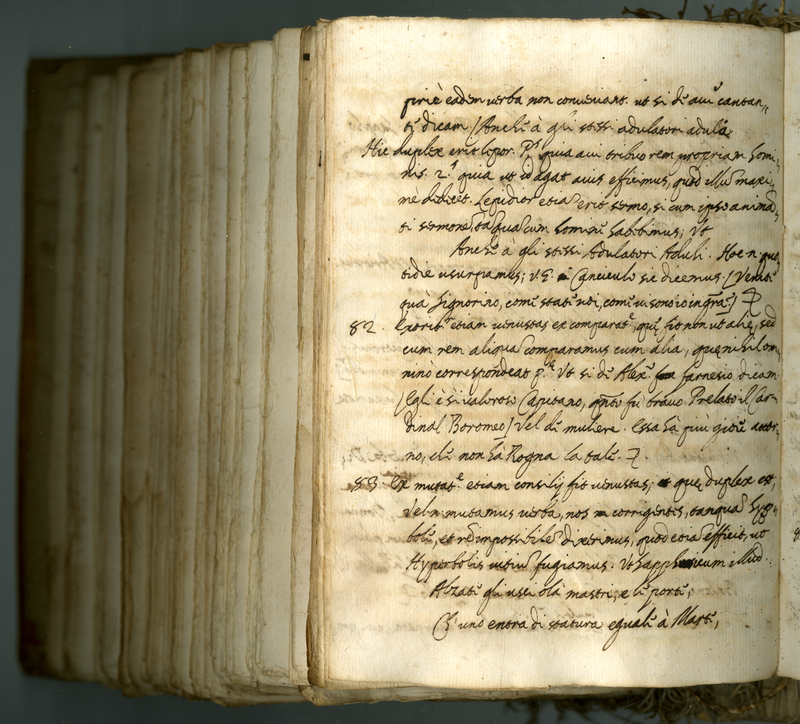 priè eadem verba non conveniant. ut si d' avi' cantan„
ti dicam / Anch' à gli stessi adulatori adula
Hic duplex erit lepor. P.s quia avi tribuo rem propriam homi„
nis. 2.s quia ut id agat avis efficimus, quod illud maxi„
mè dedecet. Lepidior etia erit sermo, si cum ipso animā„
ti sermone ta qua cum homini habebimus; Ut
Anch' à gli stessi Adulatori Aduli. Hoc n quo„
tidie usurpamus; v.g. Cancieulo sic dicemus. / Veniti
quà Signorino, comi stati voi, comi
82. Exorit' etiam venustas ex comparat.e, quę fit non ut alię, sed
cum rem aliqua comparamus cum alia, quę nihil om„
ninò correspondeat Ut si d' Alex.o Farnesio dicam
/ Egli è sì valoroso Capitano, qnto fù bravo Prelato il Car„
dinal Boromeo / Vel d' muliere. Essa hà più gioie attor„
no, ch' non hà Rogna la tal'.
83 Ex mutat.e etiam consilij fit venustas; quę duplex est,
Vel n mutamus verba, nos corrigentes, tanqua hyp„
bole, et rē impossibile dixerimus, quod etia efficit, ut
Hyperbolis vitiu fugiamus. Ut Sapphicum illud.
Alzati gli usci olà mastri, e li porti,
Ch' uno entra di statura egual' à Marti,